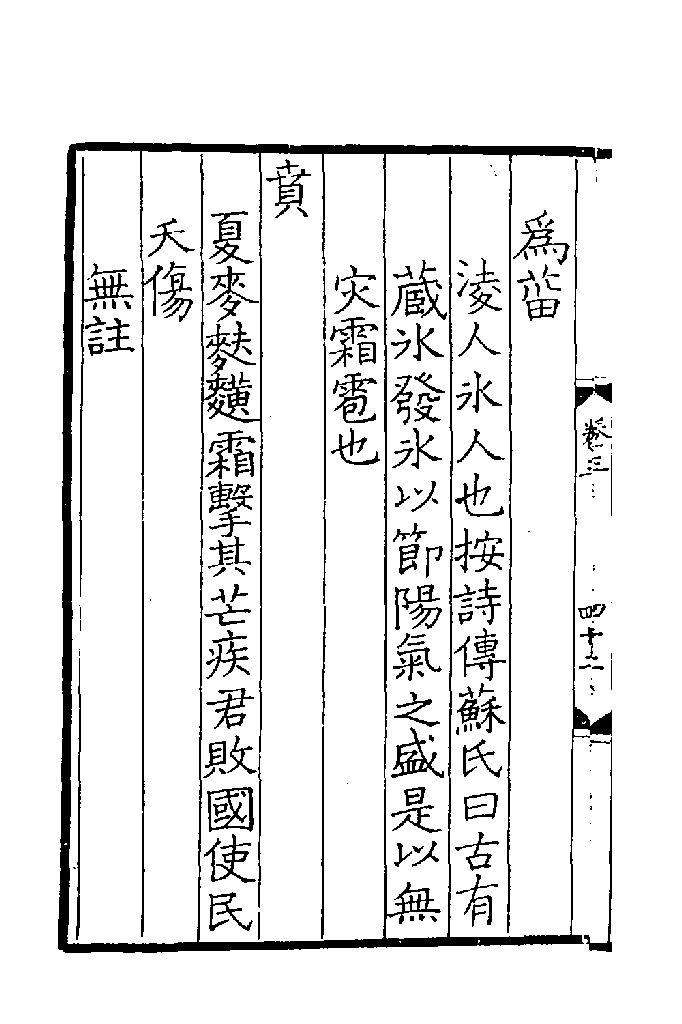 爲菑
淩人氷人也按詩傳蘇氏曰古有
蔵氷發氷以節陽氣之盛是以無
灾霜雹也
賁
夏麥麩䵃霜擊其芒疾君敗國使民
夭傷
無註
卷三
四十二